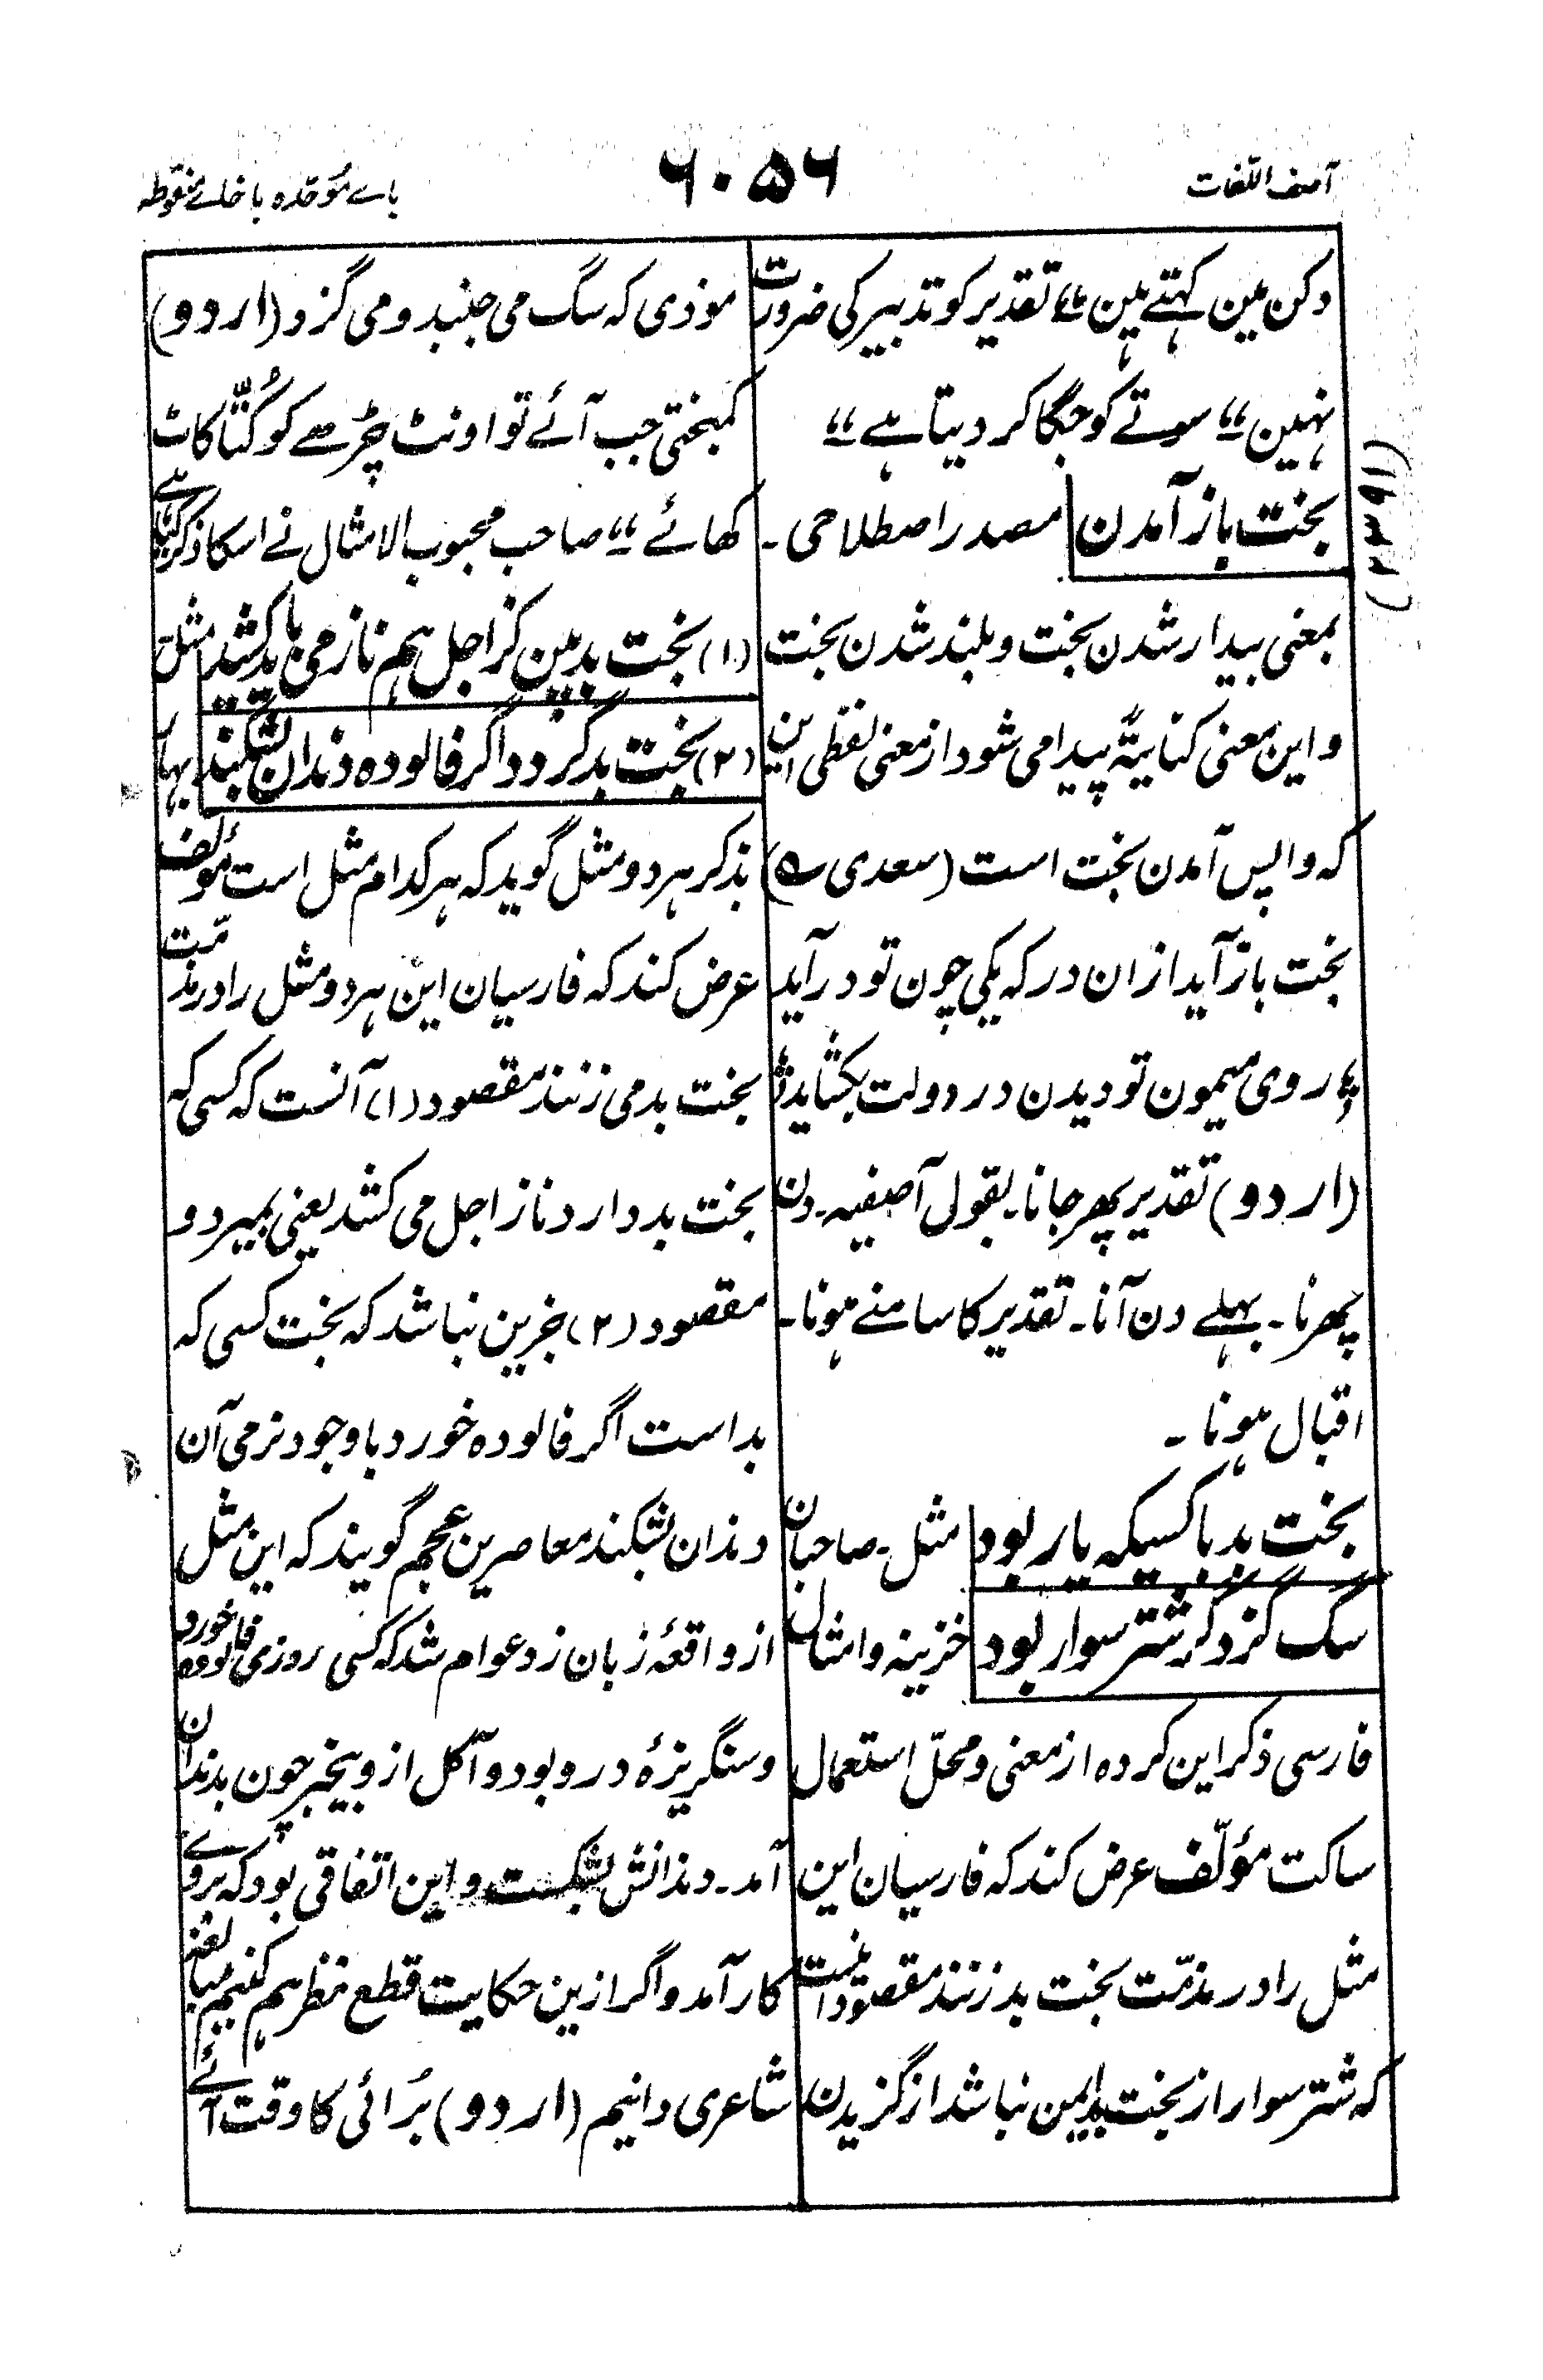 آصف اللغات
۶۰۵۶
باے موحّدہ با خاے منقوطہ
دکن مین کہتے ہین ؛؛ تقدیر کو تدبیر کی ضرورت
نہین ؛؛ سوتے کو جگا کر دیتا ہے ؛؛
بخت باز آمدن مصدر اصطلاحی ۔
بمعنی بیدار شدن بخت و بلند شدن بخت
و این معنی کنایۃً پیدا می شود از معنی لفظی این
کہ واپس آمدن بخت است (سعدی ؎)
بخت باز آید ازان در کہ یکی چون تو در آید
؛؛ روی میمون تو دیدن در دولت بکشاید ؛؛
(اردو) تقدیر پھر جانا ۔ بقول آصفیہ ۔ دن
پھرنا ۔ پہلے دن آنا ۔ تقدیر کا سامنے ہونا ۔
اقبال ہونا ۔
بخت بد با کسیکہ یار بود مثل ۔ صاحبان
سگ گزد گر شتر سوار بود خزینہ و امثال
فارسی ذکر این کردہ از معنی و محلّ استعمال
ساکت مؤلّف عرض کند کہ فارسیان این
مثل را در مذمّت بخت بد زنند مقصود اینست
کہ شتر سوار از بخت بد ایمن نباشد از گزیدن
(۲۳۹۱)
موذی کہ سگ می جنبد و می گزد (اردو)
کمبختی جب آئے تو اونٹ چڑھے کو کُتّا کاٹ
کھائے ؛؛ صاحب محبوب الامثال نے اسکا ذکر کیا ہے
(۱) بخت بد بین کز اجل ہم ناز می باید کشید مثل
(۲) بخت بد گر دد اگر فالودہ دندان بشکند بہار
بذکر ہر دو مثل گوید کہ ہر کدام مثل است مؤلف
عرض کند کہ فارسیان این ہر دو مثل را در مذمّت
بخت بد می زنند مقصود (۱) آنست کہ کسی کہ
بخت بد دارد ناز اجل می کشد یعنی بمیرد و
مقصود (۲) جزین نباشد کہ بخت کسی کہ
بد است اگر فالودہ خورد باوجود نرمی آن
دندان بشکند معاصرین عجم گویند کہ این مثل
از واقعۂ زبان زد عوام شد کہ کسی روزی فالودہ خورد
و سنگریزۂ درو بود و آکل ازو بیخبر چون بدندان
آمد ۔ دندانش بشکست و این اتفاقی بود کہ بروے
کار آمد و اگر ازین حکایت قطع نظر ہم کنیم مبالغۂ
شاعری دانیم (اردو) بُرائی کا وقت آئے